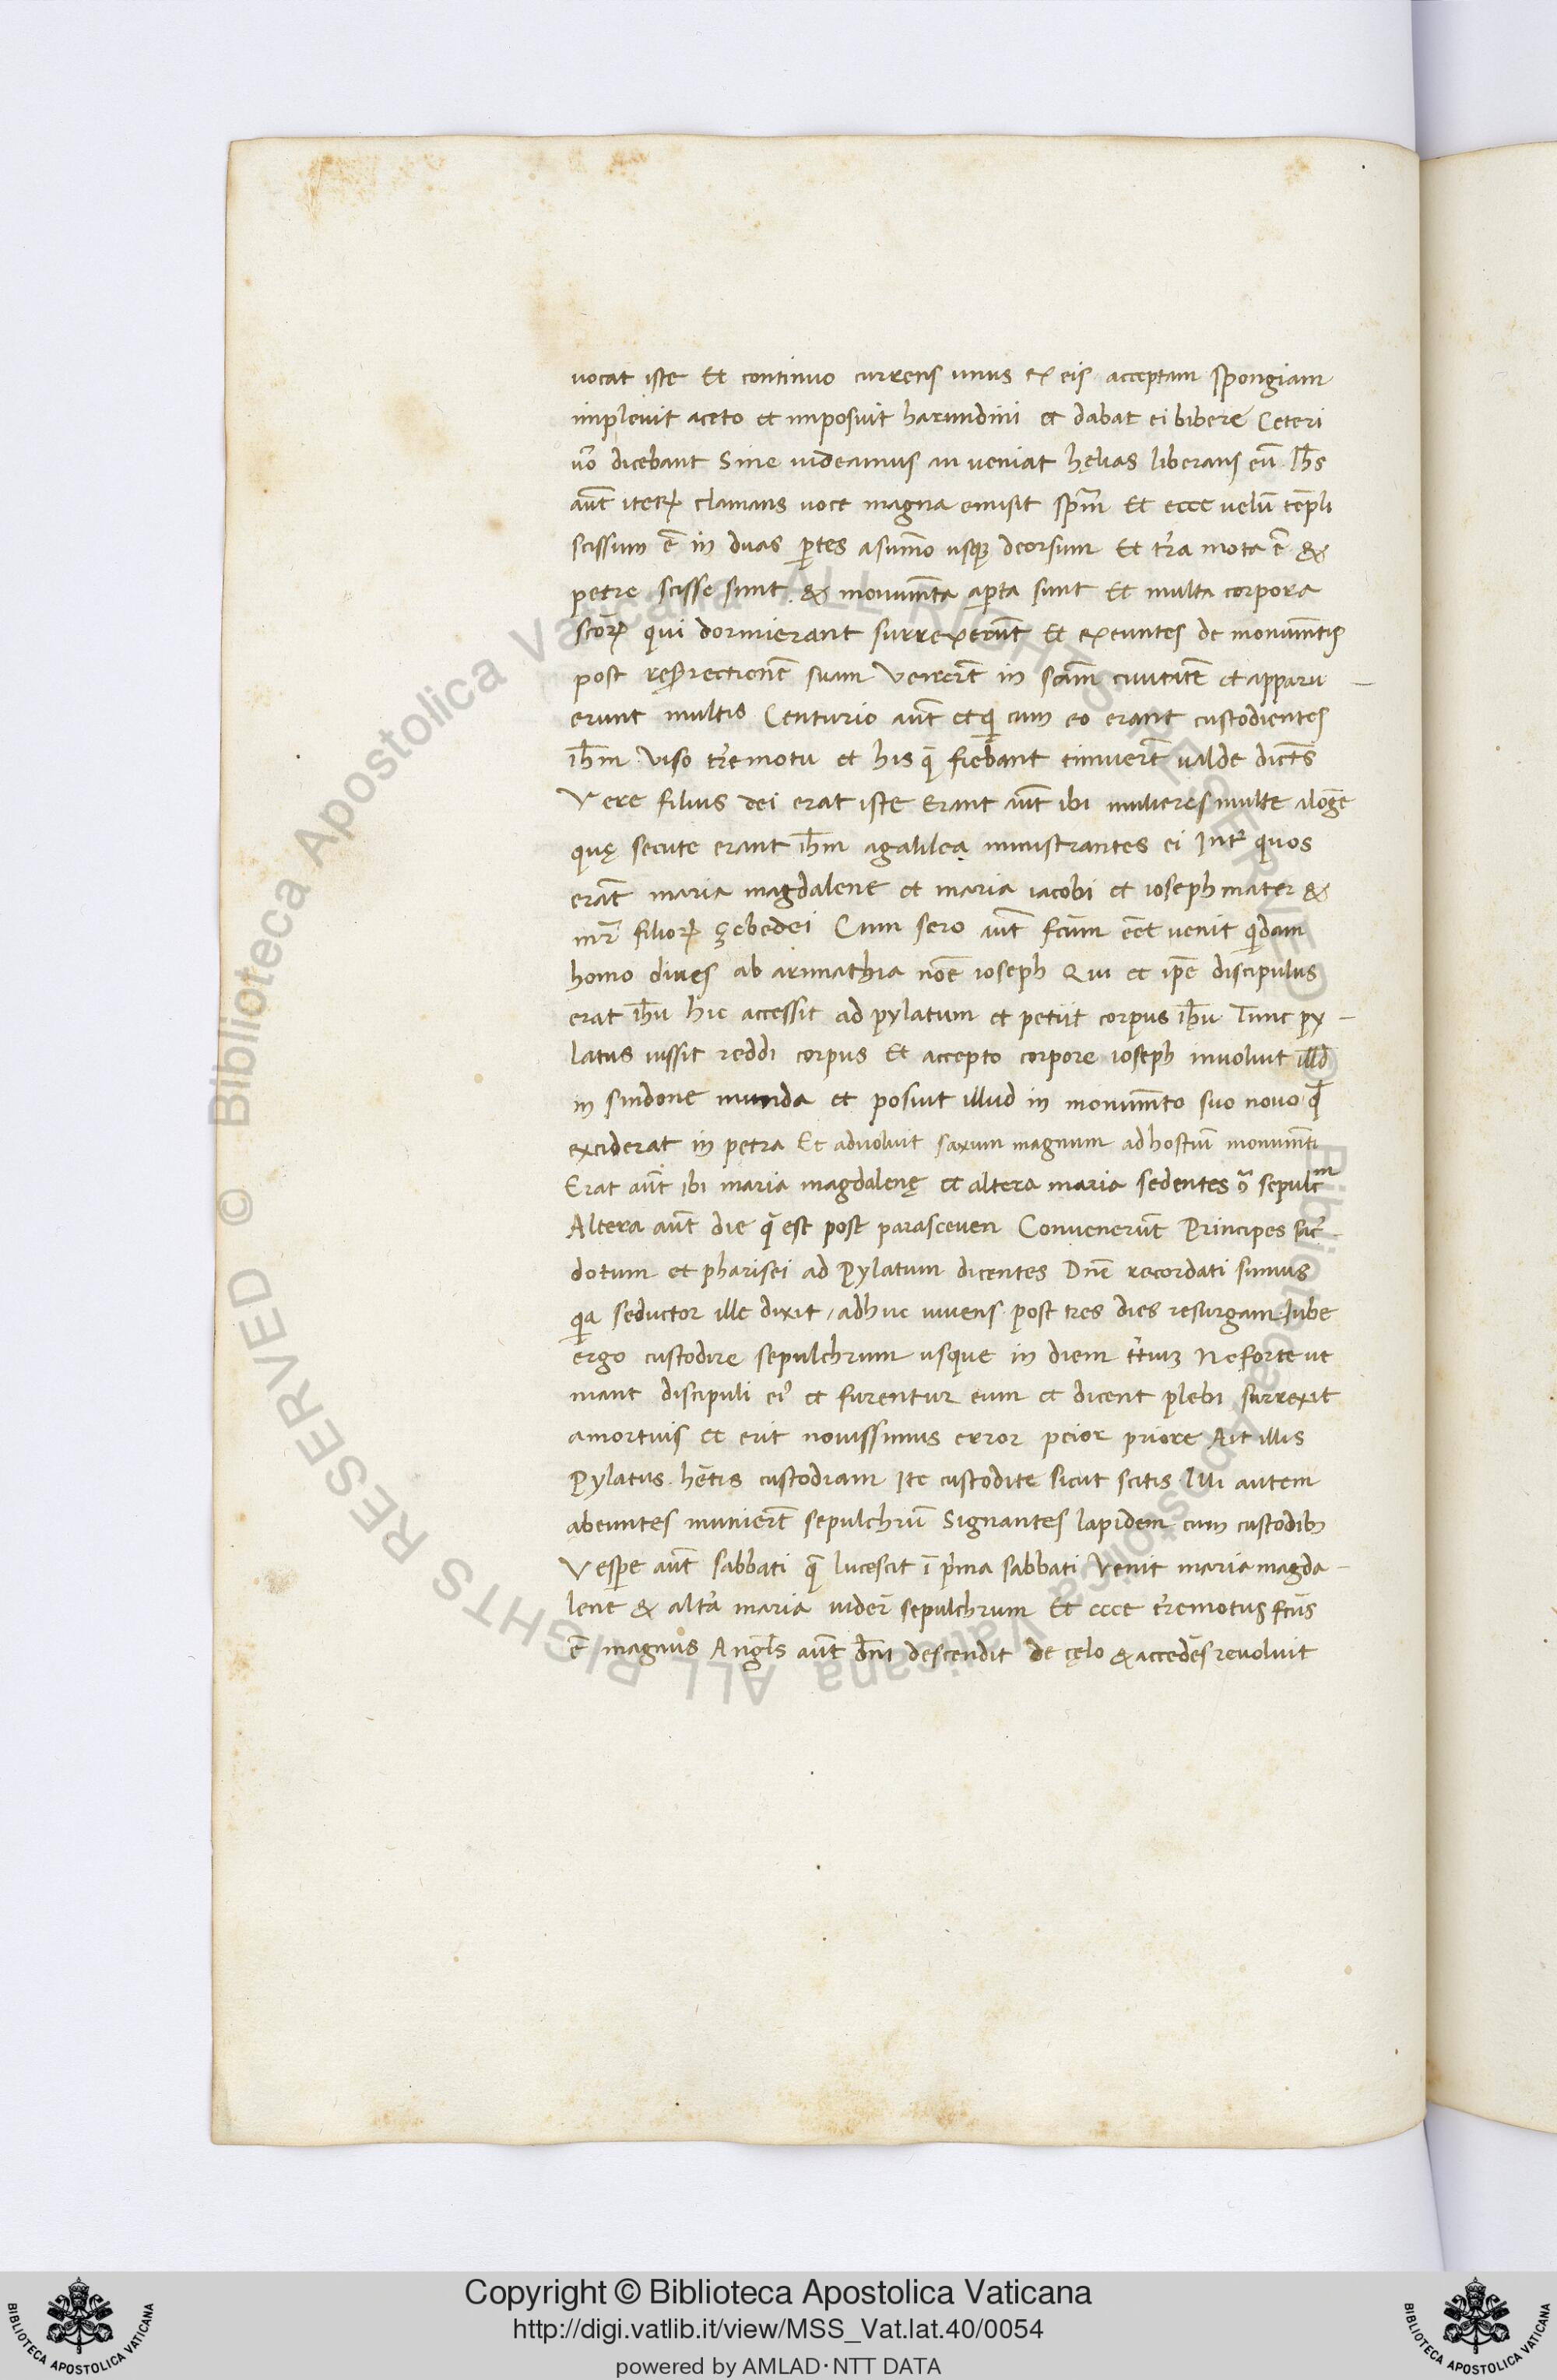 uocat iste Et continuo currens unus ex eis acceptam spongiam
impleuit aceto et imposuit harundini et dabat ei bibere Ceteri
uo᷒ dicebant Sine uideamus an ueniat hęlias liberans eū Ih̅s
aut̅ iteꝝ clamans uoce magna emisit spm̅ Et ecce uelū tēpli
scissum ē in duas ꝑtes asum̅o usqꝫ deorsum Et tr̅a mota ē &
petre scisse sunt & monum̅ta aꝑta sunt Et multa corpora
sc̅oꝝ qui dormierant surrexerūt Et exeuntes de monum̅tis
post resurrectionē suam Venert̅ in sc̅am ciuitatē et apparu-
erunt multis Centurio aut̅ et qi cum eo erant custodientes
ih̅m Viso tr̅emotu et his q̄ fiebant timuert̅ ualde dicēts
Vere filius dei erat iste Erant aut̅ ibi mulieres multe alonge
quę secute erant ih̅m agalilea ministrantes ei Int̅ quos
erat̅ maria magdalene et maria iacobi et ioseph mater &
mr̅ filioꝝ zebedei Cum sero aut̅ fc̅um eēt uenit qidam
homo diues ab arimathia noē ioseph Qui et ip̅e discipulus
erat ih̅u hic accessit ad pylatum et petiit corpus ih̅u Tunc py-
latus iussit reddi corpus Et accepto corpore ioseph inuoluit illd̅
in sindone munda et posuit illud in monum̅to suo nouo qd̅
exciderat in petra Et aduoluit saxum magnum adhostiū monum̅ti
Erat aut̅ ibi maria magdalenę et altera maria sedentes ꝯ̅ sepulcm
Altera aut̅ die q̄ est post parasceuen Conuenerūt Principes sac̅-
dotum et pharisei ad Pylatum dicentes Dn̅e recordati sumus
qia seductor ille dixit / adhuc uiuens post tres dies resurgam. Iube
ergo custodire sepulchrum usque in diem tr̅iuꝫ Neforte ue
niant discipuli ei᷒ et furentur eum et dicent plebi surrexit
amortuis et erit nouissimus error peior priore Ait illis
Pylatus hētis custodiam Ite custodite sicut scitis Illi autem
abeuntes muniert̅ sepulchrū Signantes lapidem cum custodibꝫ
Vesꝑe aut̅ sabbati q̄ lucescit ī prima sabbati Venit maria magda-
lene & altr̅a maria uider̅ sepulchrum Et ecce tr̅emotus fc̅us
ē magnus Angl̅s aut̅ dn̅i descendit de cęlo & accedēs reuoluit
Copyright © Biblioteca Apostolica Vaticana
http://digi.vatlib.it/view/MSS_Vat.lat.40/0054
powered by AMLAD·NTT DATA
BIBLIOTECA APOSTOLICA VATICANA
BIBLIOTECA APOSTOLICA VATICANA
© Biblioteca Apostolica Vaticana ALL RIGHTS RESERVED © Biblioteca Apostolica Vaticana ALL RIGHTS RESERVED